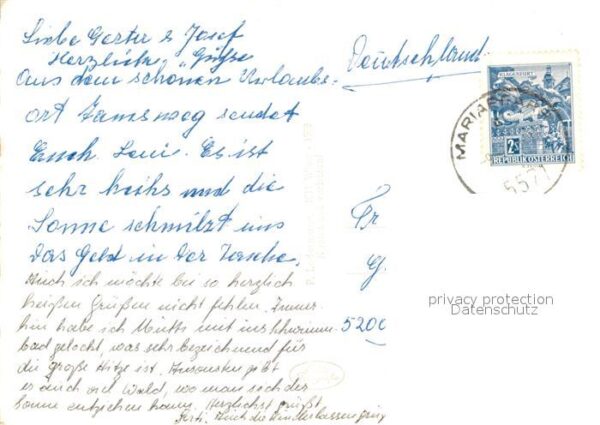 Liebe Gerter & Josef
Herzliche Grüße
Aus dem schönen Urlaubs-
ort Tamsweg sendet
Euch Loni. Es ist
sehr heihs und die
Sonne schmilzt uns
das Geld in der Tasche.
Auch ich möchte bei so herzlich
heißen Grüßen nicht fehlen. Immer
hin habe ich Mutti mit ins Schwimm-
bad gelockt, was sehr bezeichnend für
die große Hitze ist. Ansonsten gibt
es auch viel Wald, wo man sich der
Sonne entziehen kann. Herzlichst grüßt
Auch die
Deutschland
KLAGENFURT
2S
REPUBLIK ÖSTERREICH
MARIAPFARR
5571
Fr
G
5200
privacy protection
Datenschutz